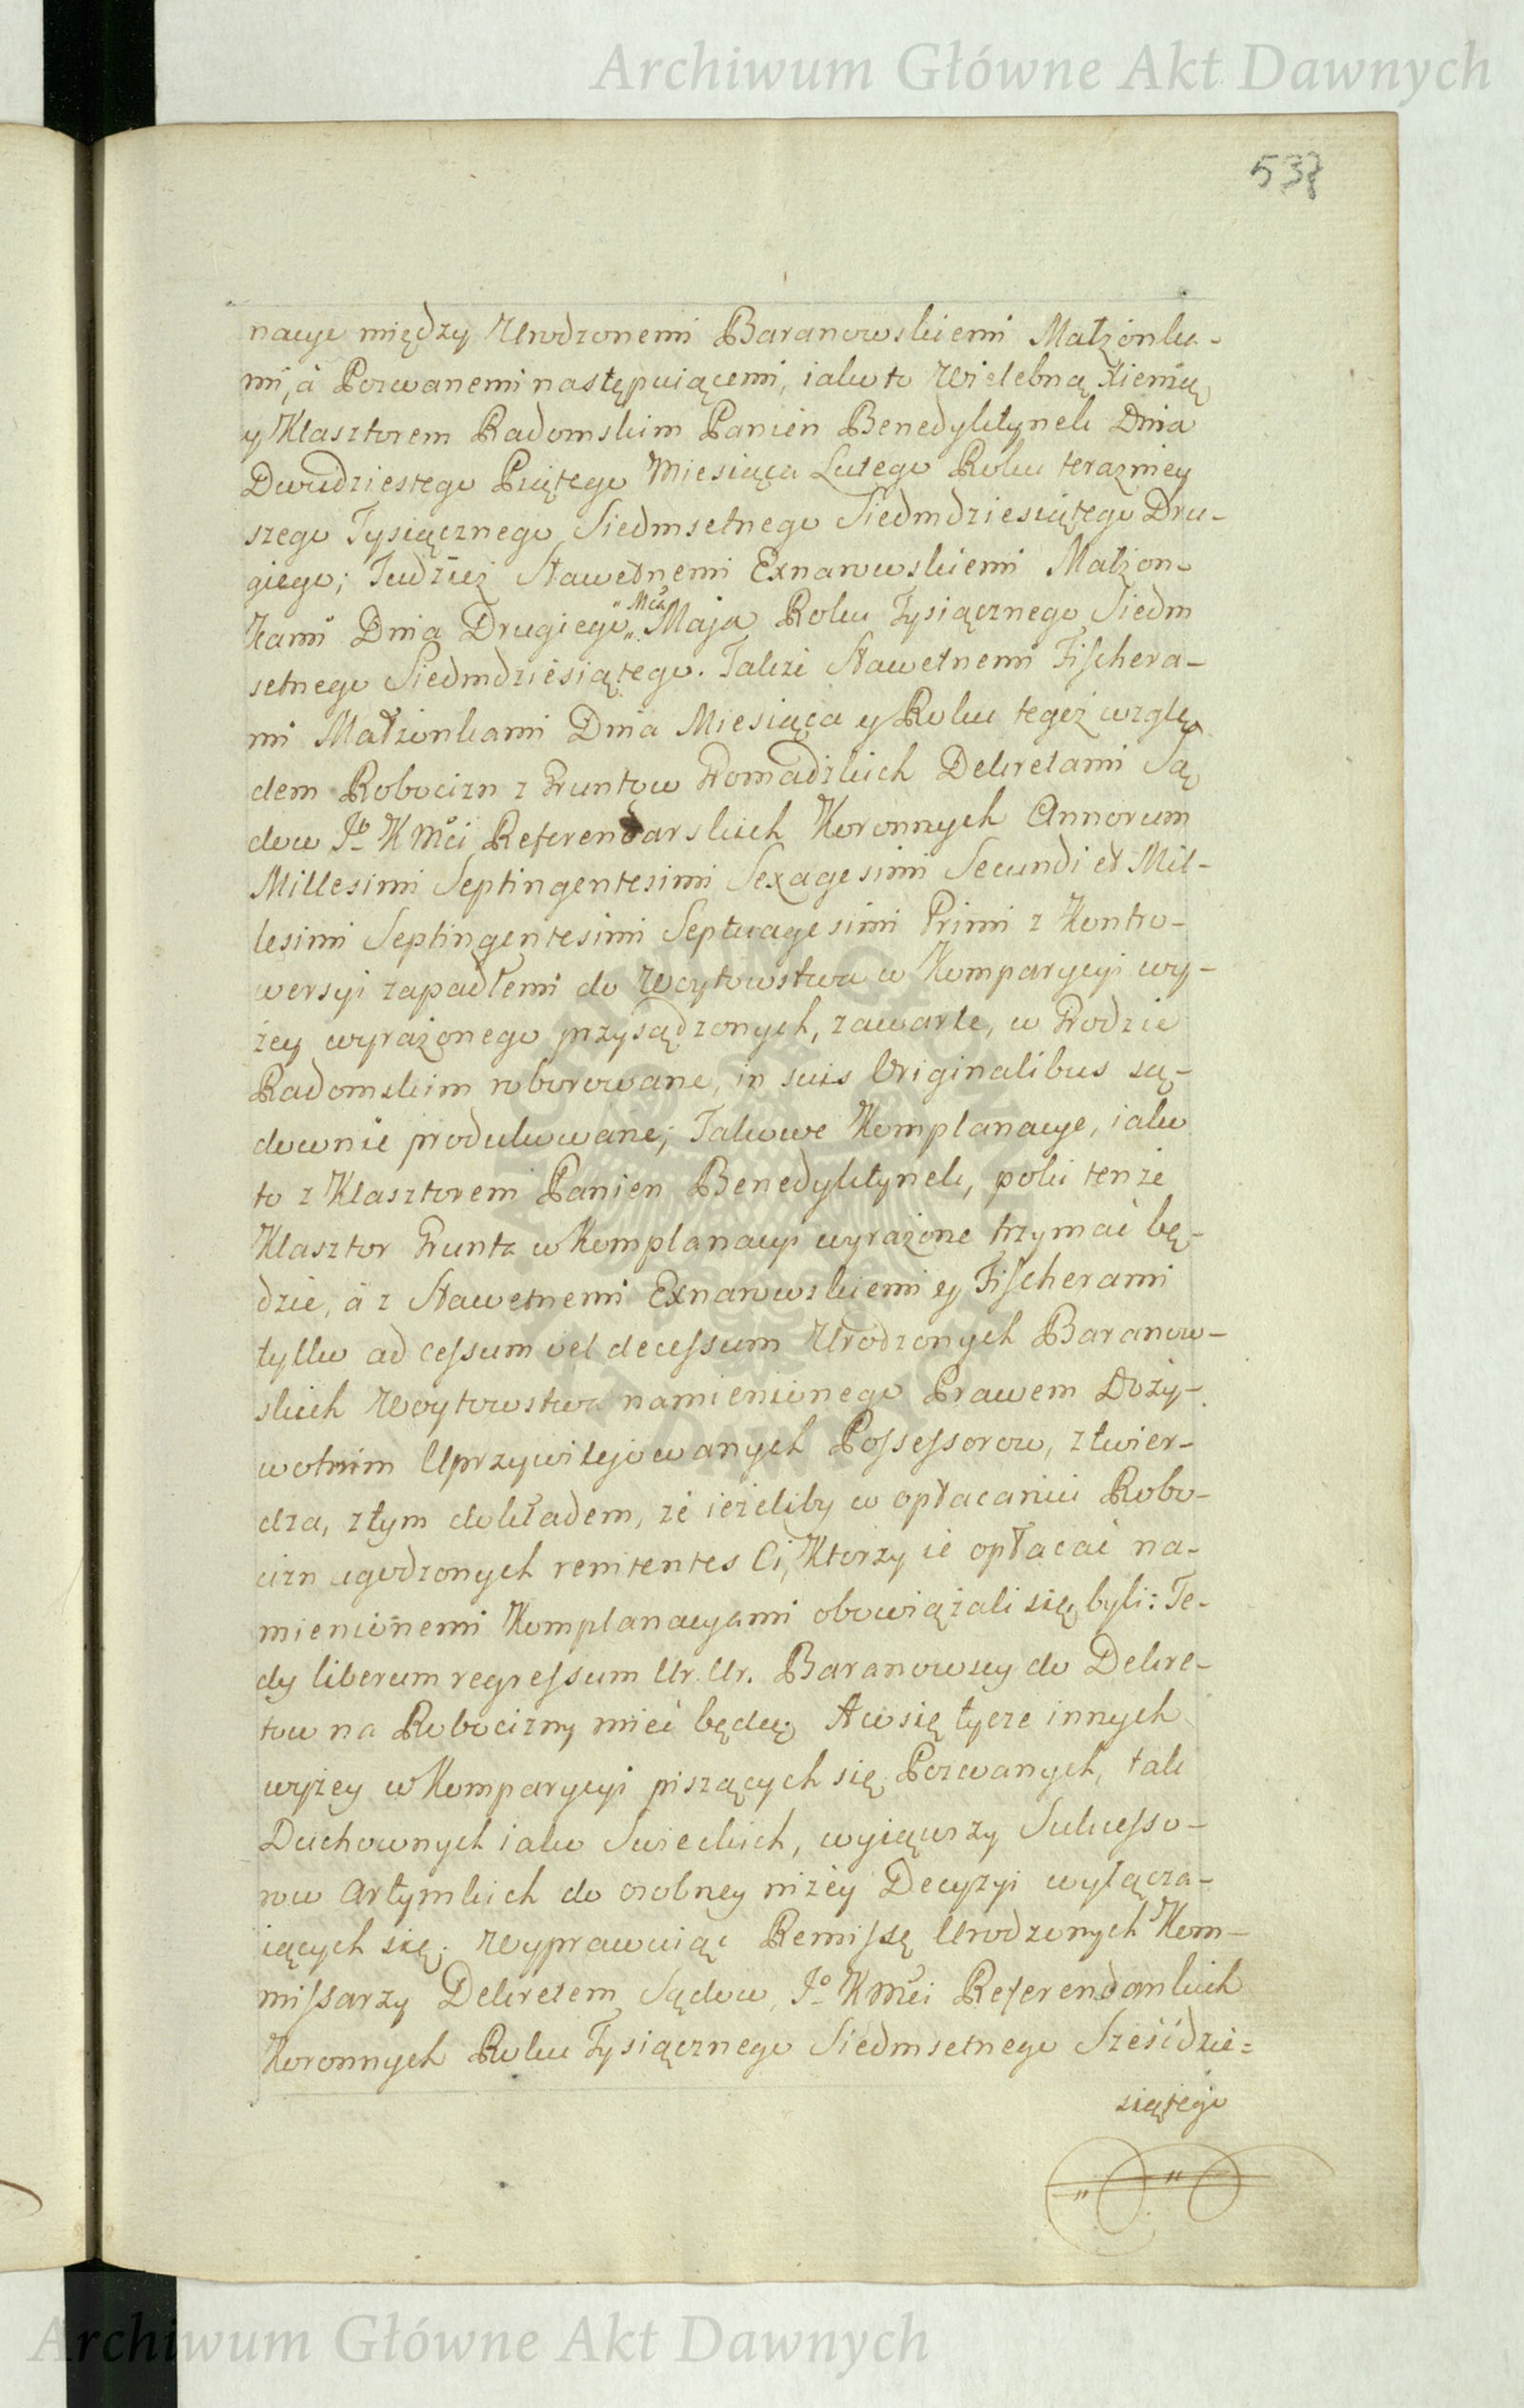 Archiwum Główne Akt Dawnych
537
nacye między Urodzonemi Baranowskiemi Małżonka-
mi, á Pozwanemi następuiącemi, iako to Wielebną Xienią
y Klasztorem Radomskim Panien Benedyktynek Dnia
Dwudziestego Piątego Miesiąca Lutego Roku terazniey
szego Tysiącznego Siedmsetnego Siedmdziesiątego Dru-
giego; Tudzież Sławetnemi Exnarowskiemi Małżon-
kami Dnia Drugiego „Mca„ Maja Roku Tysiącznego Siedm
setnego Siedmdziesiątego. Takze Sławetnemi Fischera-
mi Małżonkami Dnia Miesiąca y Roku tegoż wzglę
dem Robocizn z Gruntow Gromadzkich Dekretami Są
dow Jo K Mci Referendarskich Koronnych Annorum
Millesimi Septingentesimi Sexagesimi Secundi et Mil-
lesimi Septingentesimi Septuagesimi Primi z Kontro-
wersyi zapadłemi do Woytowstwa w Komparycyi wy-
żey wyrażonego przysądzonych, zawarte, w Grodzie
Radomskim roborowane, in suis Originalibus są-
downie produkowane; Takowe Komplanacye, iako
to z Klasztorem Panien Benedyktynek, poki tenże
Klasztor Grunta w Komplanacyi wyrażone trzymać bę-
dzie, á z Sławetnemi Exnarowskiemi y Fischerami
tylko ad cessum vel decessum Urodzonych Baranow-
skich Woytowstwa namienionego Prawem Doży-
wotnim Uprzywilejowanych Possessorow, ztwier-
dza, z tym dokładem, że ieżeliby w opłacaniu Robo-
cizn ugodzonych renitentes Ci, Ktorzy ie opłacać na-
mienionemi Komplanacyami obowiązali się, byli: Te-
dy liberum regressum Ur. Ur. Baranowscy do Dekre-
tow na Robocizny mieć będą; A co się tycze innych
wyżey w Komparycyi piszących się Pozwanych, tak
Duchownych iako Swieckich, wyiąwszy Sukcesso-
row Artymskich do osobney niżey Decyzyi wyłącza-
iących się; Wyprawuiąc Remissę Urodzonych Kom-
missarzy Dekretem Sądow Jo K Mci Referendarskich
Koronnych Roku Tysiącznego Siedmsetnego Sześćdzie-
siątego
Archiwum Główne Akt Dawnych